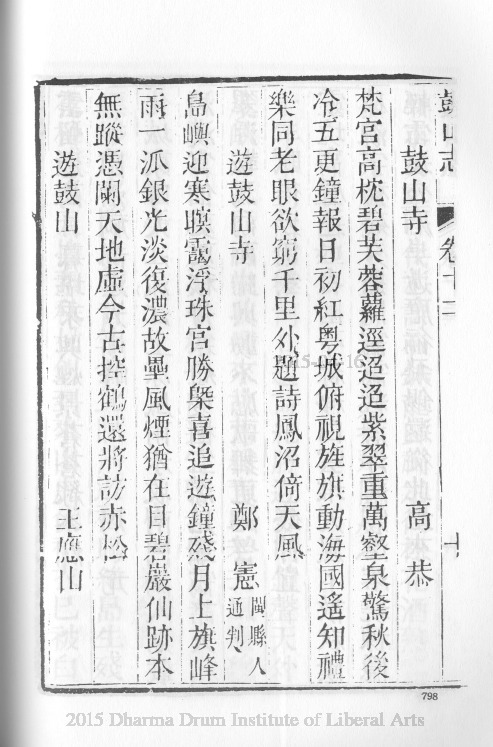 鼓山志 卷十二 十
鼓山寺 高恭
梵宮高枕碧芙蓉蘿逕迢迢紫翠重萬壑泉驚秋後
冷五更鐘報日初紅粵城俯視旌旗動海國遙知禮
樂同老眼欲窮千里外題詩鳳沼倚天風
遊鼓山寺 鄭憲 閩縣人通判
島嶼迎寒暝靄浮珠宮勝槩喜追遊鐘殘月上旗峰
雨一派銀光淡復濃故壘風煙猶在目碧巖仙跡本
無蹤憑闌天地虛今古控鶴還將訪赤松
遊鼓山 王應山
798
2015 Dharma Drum Institute of Liberal Arts